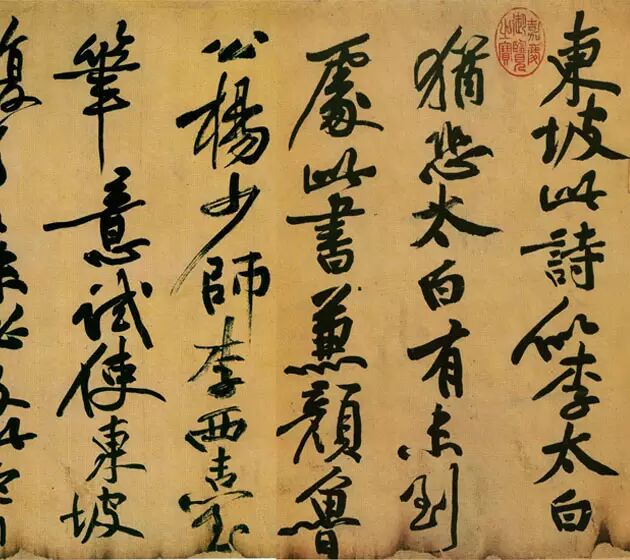 東坡此詩似李太白
猶恐太白有未到
處此書兼顏魯
公楊少師李西臺
筆意試使東坡
嘉慶御覽之寶